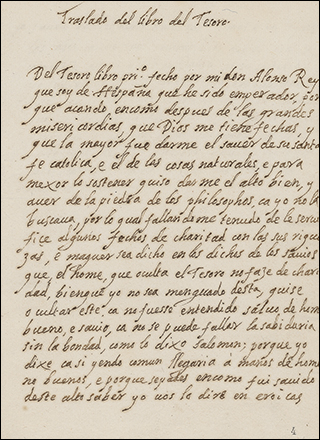 Traslado del libro del Tesoro.
Del Tesoro libro pri.º fecho por mi don Alonso Rey
que soy de Hispaña que he sido emperador, por
que acando encomo despues de las grandes
misericordias, que Dios me tiene fechas, y
que la mayor fue darme el sauer de su santa
fe catolica, e el de las cosas naturales, e para
mexor lo sostener quiso darme el alto bien, y
auer de la piedra de los philosophos, ca yo no la
buscaua, por lo qual fallandome tenudo de le seruir
fice algunos fechos de charitad con las sus rique
zas, e maguer sea dicho en los dichos de los sauios
que, el home, que oculta el Tesoro no faze de chari
dad, bien que yo no sea menguado desta, quise
ocultar este ca no fuesse entendido saluo, de home
bueno, e sauio, ca no se puede fallar la sabidaria
sin la bondad, como lo dixo Salomon; porque yo
dixe ca si yendo comun llegaria a manos de home
no buenos, e porque seyades encomo fui sauido
deste alto saber yo uos la dire en eroicas
4